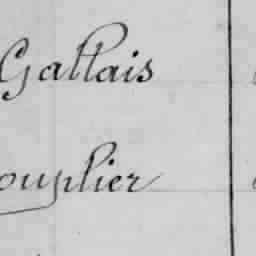 Gallais
ouplier